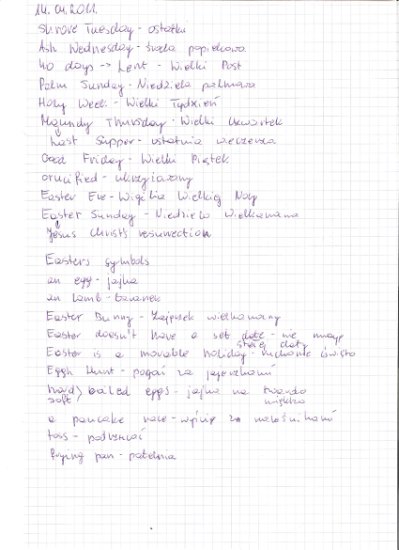 14.04.2011.
Shrove Tuesday - ostatki
Ash Wednesday - środa popielcowa
40 days -> Lent - Wielki Post
Palm Sunday - Niedziela palmowa
Holy Week - Wielki Tydzień
Maundy Thursday - Wielki czwartek
Last Supper - ostatnia wieczerza
Good Friday - Wielki Piątek
crucified - ukrzyżowany
Easter Eve - Wigilia Wielkiej Nocy
Easter Sunday - Niedziela wielkanocna
Jesus Christ's resurrection
Easters symbols
an egg - jajko
an lamb - baranek
Easter Bunny - Zajączek wielkanocny
Easter doesn't have a set date - nie mają
stałej daty
Easter is a movable holiday - ruchome święto
Eggh Hunt - pogoń za jajeczkami
hard> boiled eggs - jajka na twardo
soft miękko
a pancake race - wyścig z naleśnikami
toss - podrzucać
frying pan - patelnia